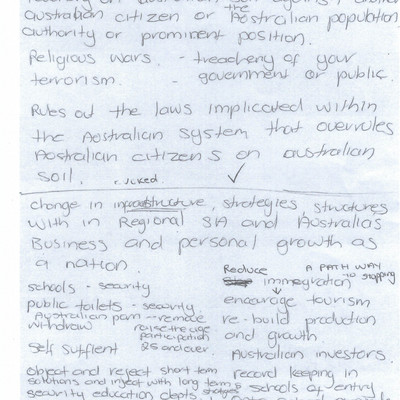 australian citizen or the Aostralian population
authority or prominent position.
Religious wars. - treachery of your
terrorism. - government or public.
Rules out the laws implicated within
the Aostralian system that overrules
Aostralian citizens on australian
soil.
change in infrastructure, strategies, structures
with in Regional SA and Australias
Business and personal growth as
a nation.
Reduce A PATH WAY
to stopping
schools - security immegration
public toilets - security encourage tourism
Australian parn - remale re-build production
withdraw raise the age
participation and growth
self suffient 25 and over.
Australian investors.
object and reject short term record keeping in
solutions and inject with long term schools of entry
security education depts